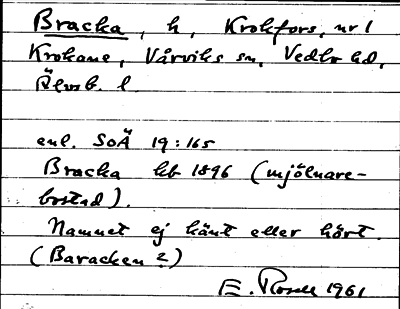 Bracka, h, Krokfors, nr 1
Krokane, Vårviks sn, Vedbo hd,
Älvsb. l.
enl. SoÄ 19:165
Bracka hb 1896 (mjölnare-
bostad).
Namnet ej känt eller hört.
(Baracken?)
E. 1961